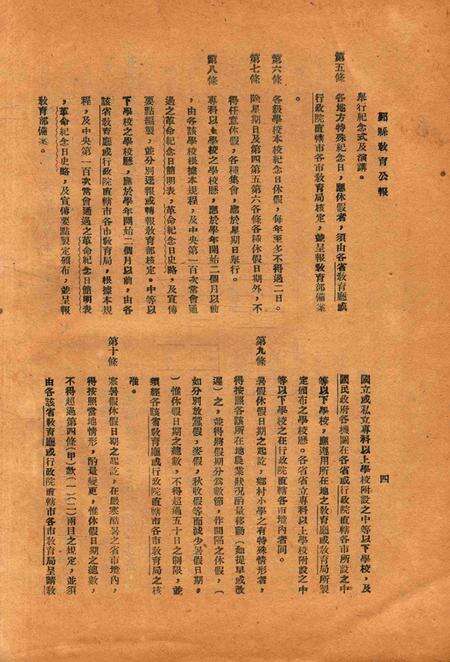 縣教育公報
舉行紀念式及演講。
第五條　各地方特殊紀念日，應休假者，須由各省教育廳或
行政院直轄市各市教育局核定，並呈報教育部備案
。
第六條　各級學校本校紀念日休假，每年至多不得過二日。
第七條　除星期日及第四第五第六各條各種休假日期外，不
得任意休假，各種集會，應於星期日舉行。
第八條　專科以上學校之學校曆，應於學年開始二個月以前
，由各該學校根據本規程，及中央第一百次常會通
過之革命紀念日簡明表，革命紀念日史略，及宣傳
要點編製，並分別逕報或轉報教育部核定。中等以
下學校之學校曆，應於學年開始二個月以前，由各
該省教育廳或行政院直轄市各市教育局，根據本規
程，及中央第一百次常會通過之革命紀念日簡明表
，革命紀念日史略，及宣傳要點製定頒布，並呈報
教育部備案。
四
國立或私立專科以上學校附設之中等以下學校，及
國民政府各機關在各省或行政院直轄各市所設之中
等以下學校，應遵用所在地之教育廳或教育局所製
定頒布之學校曆。各省省立專科以上學校附設之中
等以下學校之在行政院直轄各市境內者同。
第九條　暑假休假日期之起訖，鄉村小學之有特殊情形者，
得按照各該所在地農業狀況酌量移動（如提早或改
遲）之，並得將假期分為數節，作間隔之休假，（
如分別放蠶假，麥假，秋收假等而減少暑假日期。
）惟休假日期之總數，不得超過五十日之制限，並
須經各該省教育廳或行政院直轄市各市教育局之核
准。
第十條　寒暑假休假日期之起訖，在嚴寒酷暑之省市境內，
得按照當地情形，酌量變更，惟休假日期之總數，
不得超過第四條（甲）款（一）（二）兩目之規定，並須
由各該省教育廳或行政院直轄市各市教育局呈請教